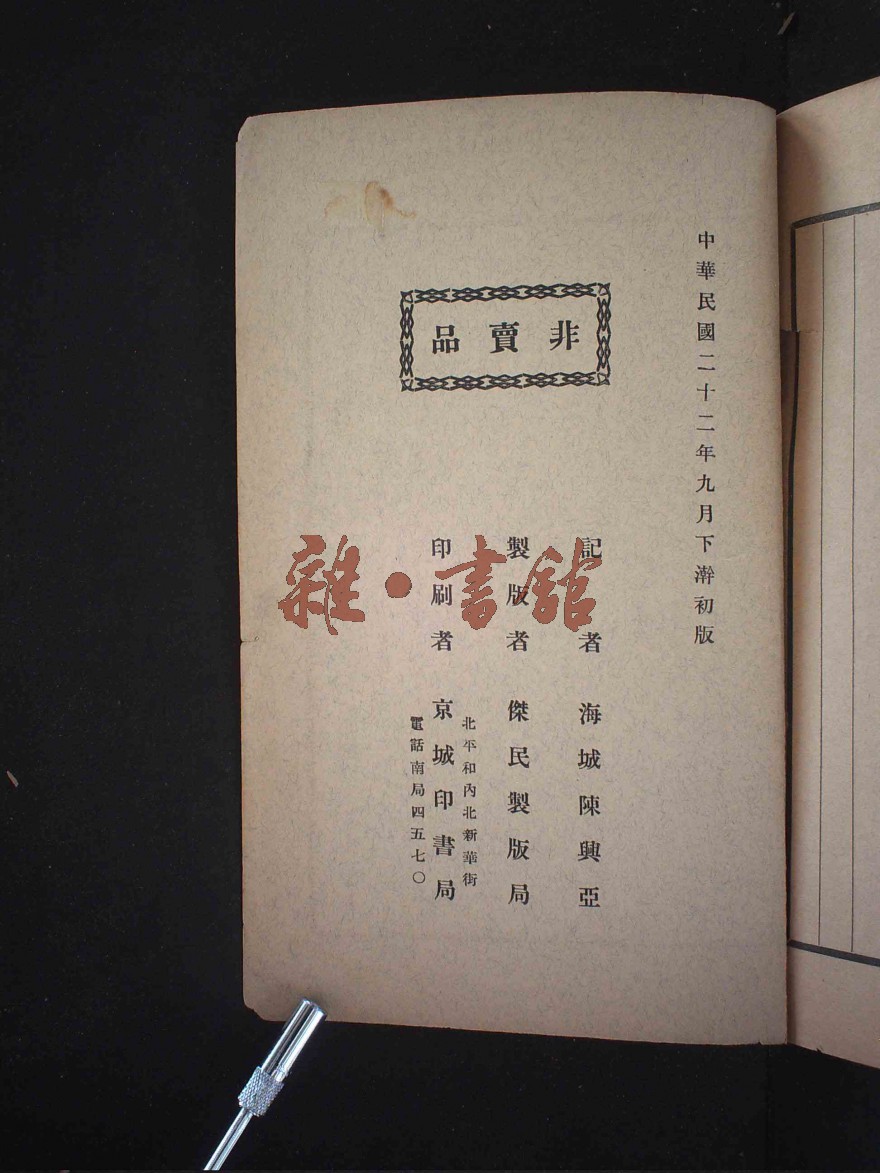 中華民國二十二年九月下澣初版
非賣品
記者　海城陳興亞
製版者　傑民製版局
印刷者　京城印書局
北平和內北新華街
電話南局四五七〇
雜·書館